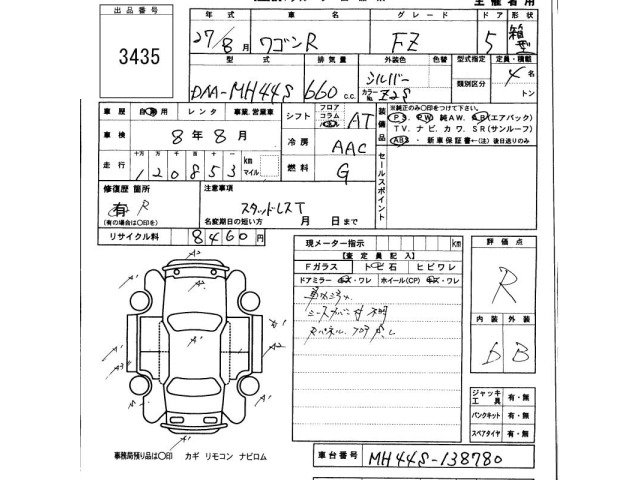 主催者用
出品番号
3435
年式 車名 グレード ドア 形状
27/8月 ワゴンR FZ 5 箱型
型式 排気量 外装色 色替 型式指定 定員・積載
DAA-MH44S 660 c.c. シルバー カラーNo. Z2S 類別区分 4名
トン
車歴 自家用 レンタ 事業、営業車 シフト フロア コラム AT
車検 8年8月 冷房 AAC
走行 十万 万 千 百 十 一 120853 km マイル 燃料 G
装備品 ※純正のみ〇印をつけて下さい。
PS. PW 純AW. AB(エアバック)
TV. ナビ. カワ. SR(サンルーフ)
ABS・新車保証書←(注)後日送りのみ
セールスポイント
修復歴 箇所
有 R
(有の場合は〇印を)
注意事項
スタッドレスT
名変期日の短い方 月 日まで
リサイクル料 8460円
現メーター指示 km
【査定員記入】
Fガラス トビ石 ヒビワレ
ドアミラー キズ・ワレ ホイール(CP) キズ・ワレ
評価点
R
内装 外装
B
ジャッキ工具 有・無
パンクキット 有・無
スペアタイヤ 有・無
事務局預り品は〇印 カギ リモコン ナビロム
車台番号 MH44S-138780